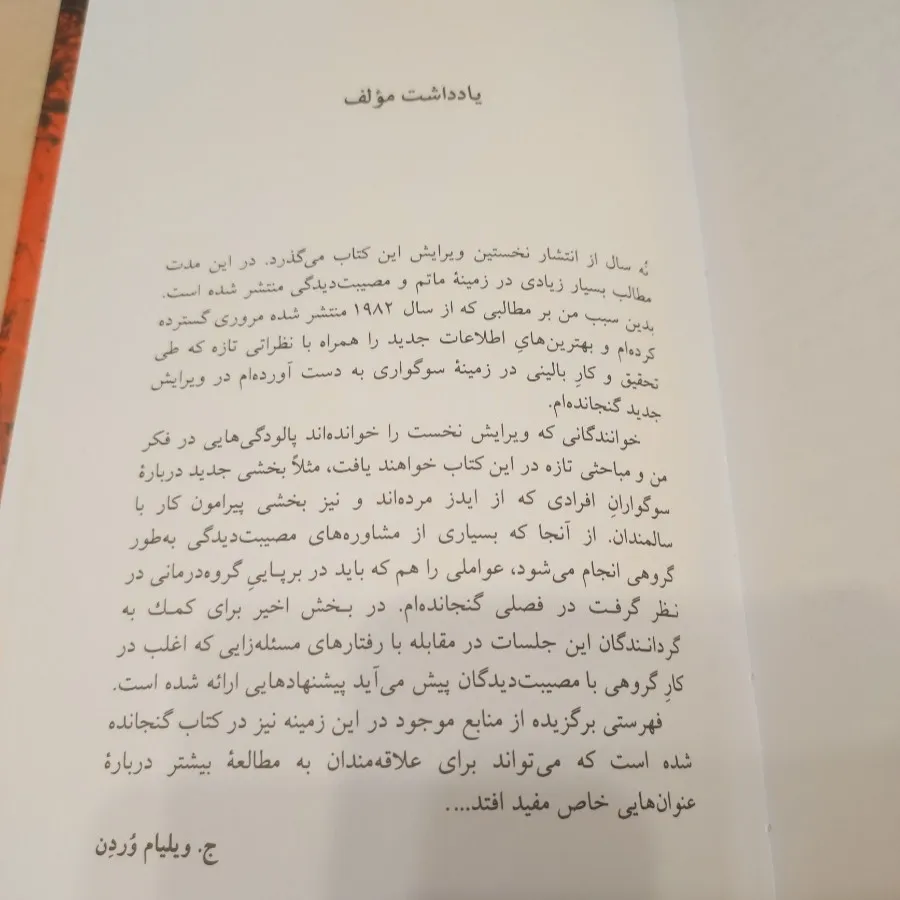 یادداشت مؤلف
نُه سال از انتشار نخستین ویرایش این کتاب می‌گذرد. در این مدت
مطالب بسیار زیادی در زمینهٔ ماتم و مصیبت‌دیدگی منتشر شده است.
بدین سبب من بر مطالبی که از سال ۱۹۸۲ منتشر شده مروری گسترده
کرده‌ام و بهترین‌هایِ اطلاعات جدید را همراه با نظراتی تازه که طی
تحقیق و کارِ بالینی در زمینهٔ سوگواری به دست آورده‌ام در ویرایش
جدید گنجانده‌ام.
خوانندگانی که ویرایش نخست را خوانده‌اند پالودگی‌هایی در فکر
من و مباحثی تازه در این کتاب خواهند یافت، مثلاً بخشی جدید دربارهٔ
سوگوارانِ افرادی که از ایدز مرده‌اند و نیز بخشی پیرامون کار با
سالمندان. از آنجا که بسیاری از مشاوره‌های مصیبت‌دیدگی به‌طور
گروهی انجام می‌شود، عواملی را هم که باید در برپاییِ گروه‌درمانی در
نظر گرفت در فصلی گنجانده‌ام. در بخش اخیر برای کمک به
گردانندگان این جلسات در مقابله با رفتارهای مسئله‌زایی که اغلب در
کارِ گروهی با مصیبت‌دیدگان پیش می‌آید پیشنهادهایی ارائه شده است.
فهرستی برگزیده از منابع موجود در این زمینه نیز در کتاب گنجانده
شده است که می‌تواند برای علاقه‌مندان به مطالعهٔ بیشتر دربارهٔ
عنوان‌هایی خاص مفید افتد....
ج. ویلیام وُردِن